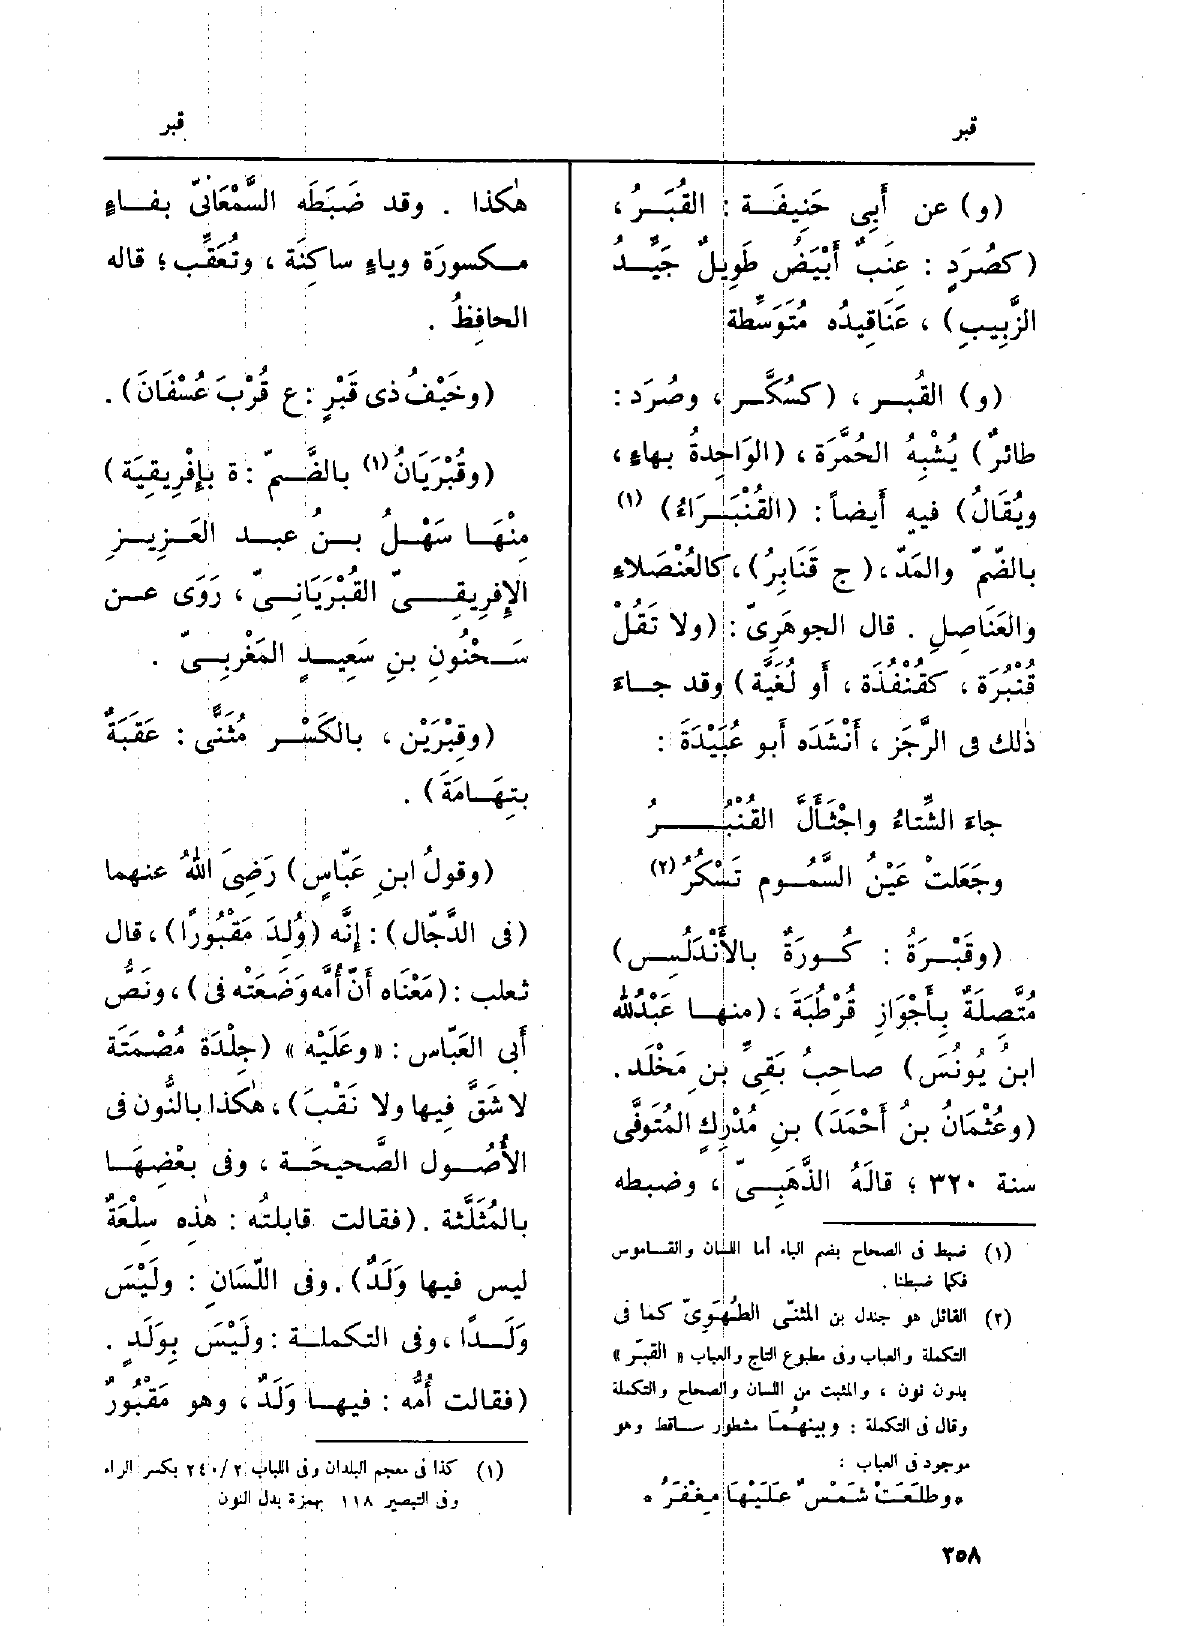 قبر
قبر
(و) عن أَبى حَنِيفَة : القُبَرُ ،
(كصُرَدٍ : عِنَبٌ أَبْيَضُ طَوِيلٌ جَيِّدُ
الزَّبِيبِ) ، عَنَاقِيدُه مُتَوَسِّطة
(و) القُبر ، (كسُكَّر ، وصُرَد :
طائرٌ) يُشْبِهُ الحُمَّرَة ، (الوَاحِدةُ بهاءٍ ،
ويُقَالُ) فيه أَيضاً : (القُنْبَرَاءُ) (١)
بالضّمّ والمَدّ ، (ج قَنَابِرُ) ، كالعُنْصَلاءِ
والعَنَاصِلِ . قال الجوهَرِىّ : (ولا تَقُلْ
قُنْبُرَة ، كقُنْفُذَة ، أَو لُغَيَّة) وقد جاءَ
ذٰلك فى الرَّجَز ، أَنْشَدَه أَبو عُبَيْدَةَ :
جاءَ الشِّتاءُ واجْثَأَلَّ القُنْبُرُ
وجَعَلتْ عَيْنُ السَّمُوم تَسْكُرُ (٢)
(وقَبْرَةُ : كُورَةٌ بالأَنْدَلُسِ)
مُتَّصِلَةٌ بأَجْوَازِ قُرْطُبَةَ ، (منها عَبْدُ الله
ابنُ يُونُسَ) صاحِبُ بَقِىِّ بنِ مَخْلَد .
(وعُثْمَانُ بنُ أَحْمَدَ) بنِ مُدْرِكٍ المُتَوفَّى
سنة ٣٢٠ ؛ قالَهُ الذَّهَبِىّ ، وضبطه
(١) ضبط فى الصحاح بضم الباء أما اللسان والقاموس
فكما ضبطنا .
(٢) القائل هو جندل بن المثنّى الطُهَوِىّ كما فى
التكملة والعباب وفى مطبوع التاج والعباب « القبّر »
بدون نون ، والمثبت من اللسان والصحاح والتكملة
وقال فى التكملة : وبينهُما مشطور ساقط وهو
موجود فى العباب :
• وطلَعَتْ شمْسٌ عليْها مِغْفَرُ •
هٰكذا . وقد ضَبَطَه السَّمْعَانىّ بفاءٍ
مكسورَة وياءٍ ساكِنَة ، وتُعُقِّب ؛ قاله
الحافِظُ .
(وخَيْفُ ذى قَبْرٍ : ع قُرْبَ عُسْفَانَ) .
(وقُبْرَيَانُ (١) بالضَّمّ : ة بإِفْرِيقِيَة)
مِنْهَا سَهْلُ بنُ عبد العَزِيزِ
الإِفرِيقِىّ القُبْرَيَانِىّ ، رَوَى عن
سَحْنُونِ بنِ سَعِيدٍ المَغْرِبىّ .
(وقِبْرَيْن ، بالكَسْر مُثَنًّى : عَقَبَةٌ
بتِهَامَةَ) .
(وقولُ ابنِ عَبّاسٍ) رَضِىَ اللهُ عنهما
(فى الدَّجّال) : إِنَّه (وُلِدَ مَقْبُورًا) ، قال
ثعلب : (مَعْنَاه أَنّ أُمَّه وَضَعَتْه فى) ، ونَصُّ
أَبى العَبّاس : « وعَلَيْه » (جِلْدَة مُصْمَتَة
لا شَقَّ فيها ولا نَقْبَ) ، هٰكذا بالنُّون فى
الأُصُول الصَّحيحَة ، وفى بعْضهَا
بالمُثَلَّثة . (فقالت قابلتُه : هٰذِه سِلْعَةٌ
ليس فيها وَلَدٌ) . وفى اللّسَانِ : ولَيْسَ
وَلَدًا ، وفى التكملة : ولَيْسَ بوَلَدٍ .
(فقالت أُمُّه : فيها وَلَدٌ ، وهو مَقْبُورٌ
(١) كذا فى معجم البلدان وفى اللباب ٢٤٠/٢ بكسر الراء
وفى التبصير ١١٨ بهمزة بدل النون
٣٥٨